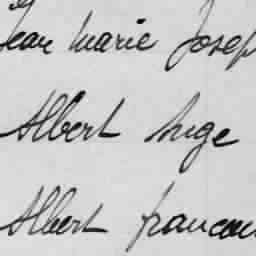 Jean Marie Josep
Albert Ange
Albert francou